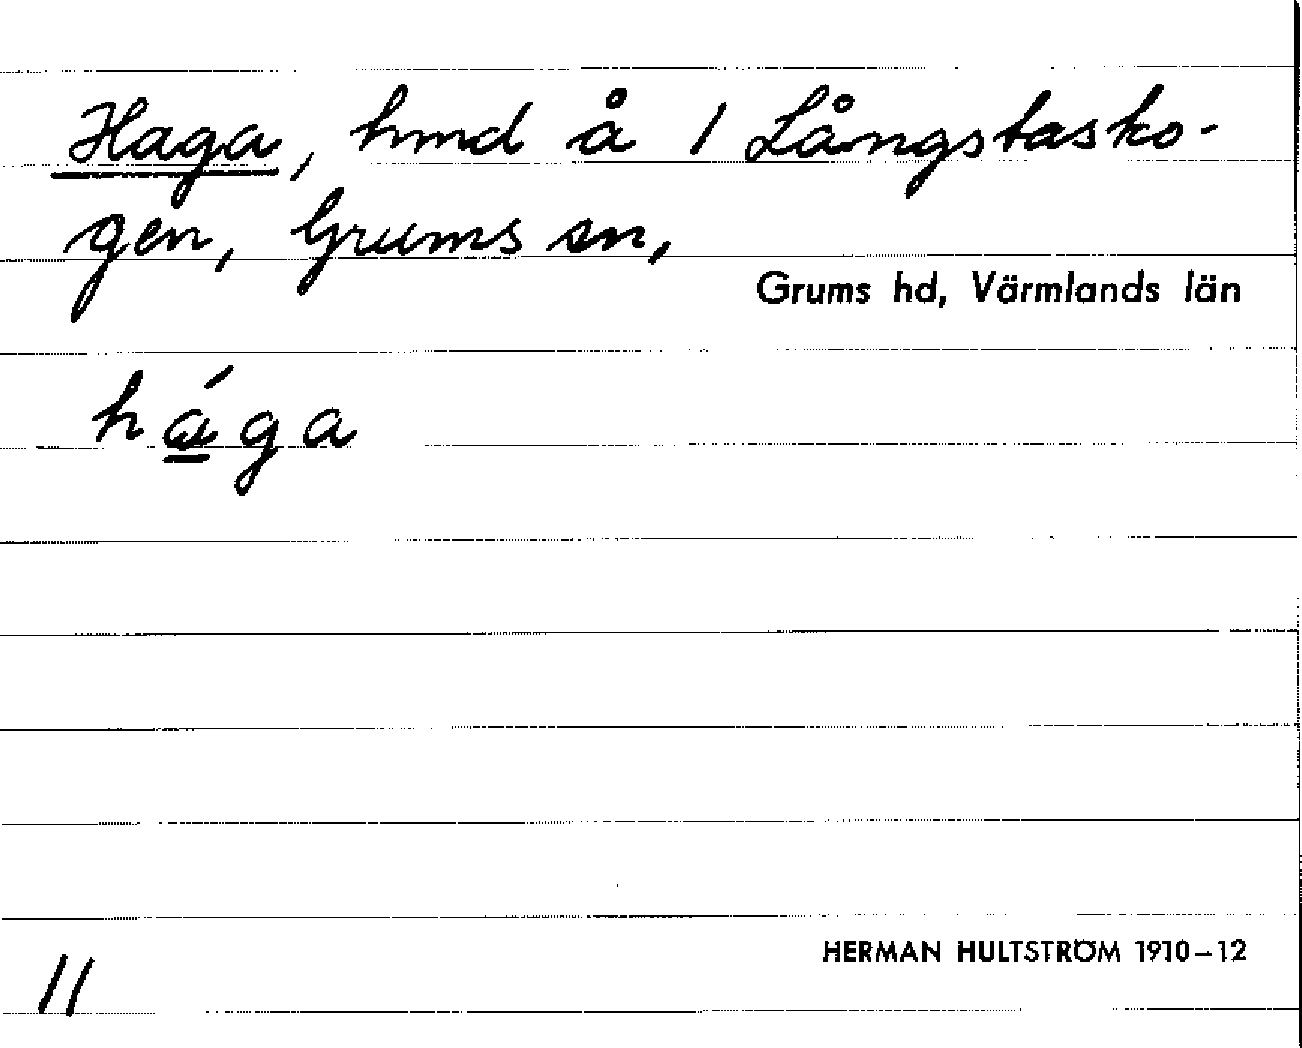 Haga, hmd å 1 Långstasko-
gen, Grums sn,
Grums hd, Värmlands län
hága
HERMAN HULTSTRÖM 1910–12
11